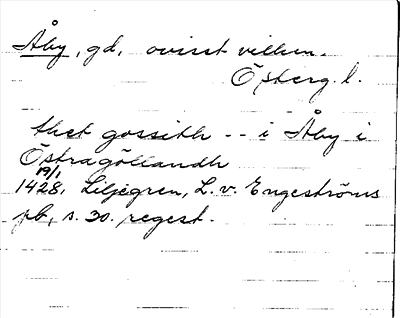 Åby, gd, ovisst vilken.
Österg.l.
thet gossith -- i Åby i
Östragöllandh
19/1
1428, Liljegren, L. v. Engeströms
pb, s. 30. regest.